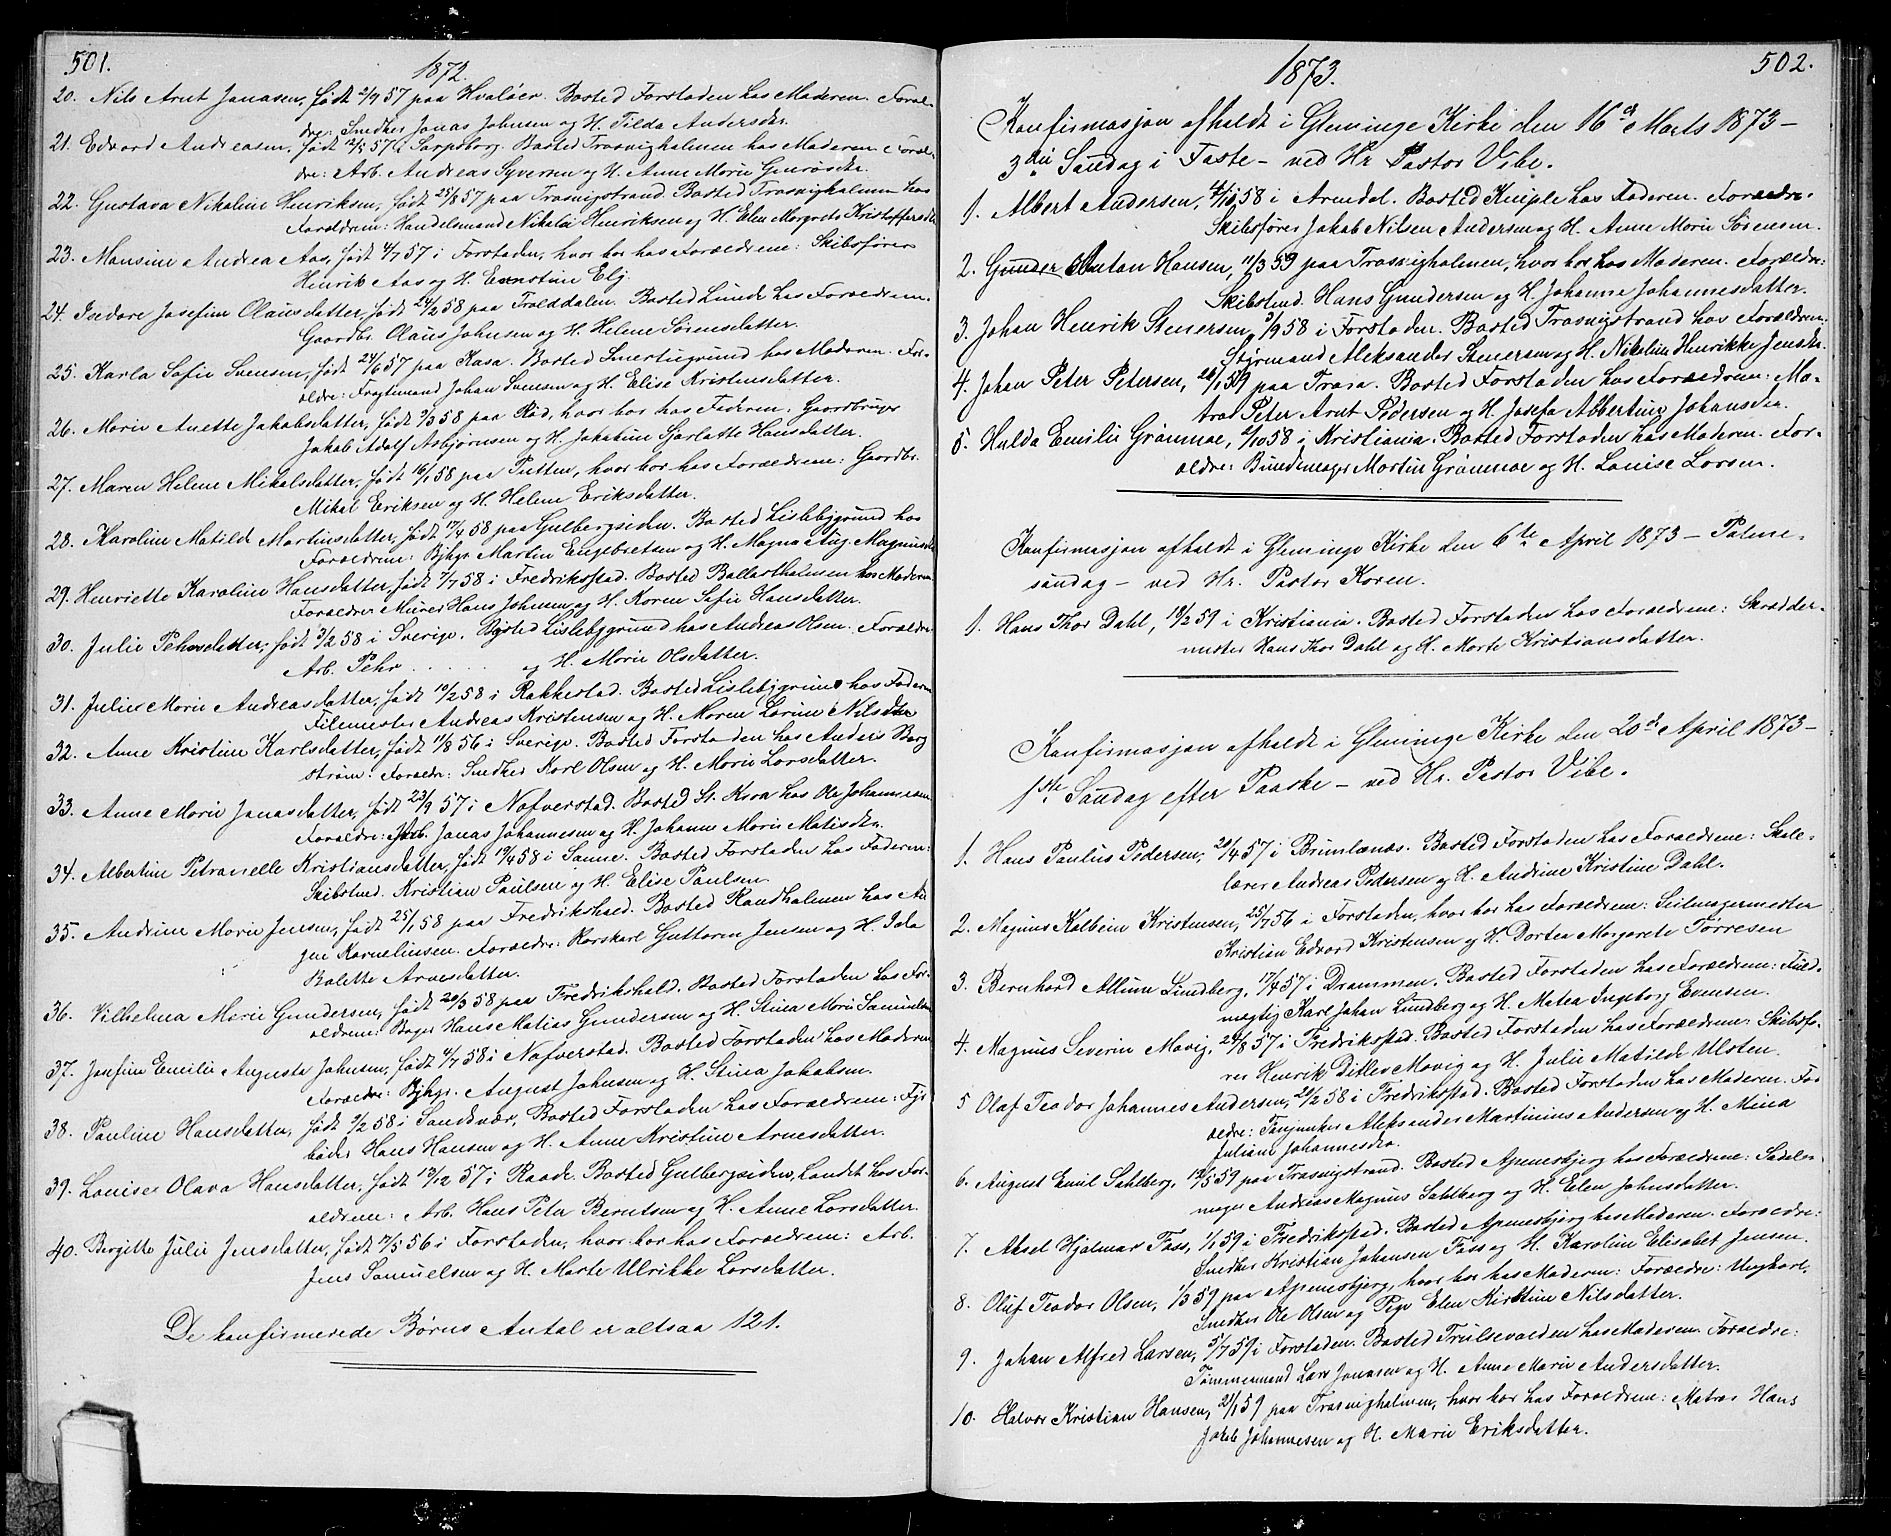 501.
1872.
20. Nils Arnt Jonasen, født 2/9 57 paa Hvaløer. Bosted Forstaden hos Moderen. Foræl-
dre: Snedker Jonas Johnsen og H. Tilda Andersdtr.
21. Edvard Andreasen, født 12/5 57 i Sarpsborg. Bosted Trosvigholmen hos Moderen. Foræl-
dre: Arb. Andreas Syversen og H. Anne Marie
22. Gustava Nikoline Henriksen, født 25/8 57 paa Trosvigstrand. Bosted Trosvigholmen hos
Forældrene: Handelsmand Nikolai Henriksen og H. Elen Margrete Kristoffersdtr
23. Mansine Andrea Aas, født 4/7 57 i Forstaden, hvor bor hos Forældrene: Skibsfører
Henrik Aas og H. Ernstine Elj.
24. Isedore Josefine Olausdatter, født 24/2 58 paa Trolddalen. Bosted Lunde hos Forældrene.
Gaardbr. Olaus Johnsen og H. Helene Sørensdatter.
25. Karla Sofie Svensen, født 24/6 57 paa Kasa. Bosted Smertugrund hos Moderen. For-
ældre: Fragtemand Johan Svensen og H. Elise Kristensdatter.
26. Marie Anette Jakobsdatter, født 3/3 58 paa Rød, hvor bor hos Faderen. Gaardbruger
Jakob Adolf Asbjørnsen og H. Jakobine Sjarlotte Hansdatter.
27. Maren Helene Mikalsdatter, født 16/1 58 paa Putten, hvor bor hos Forældrene: Gaardbr.
Mikal Eriksen og H. Helene Eriksdatter.
28. Karoline Matilde Martinsdatter, født 17/4 58 paa Gulbergsiden. Bosted Lislebygrund hos
Forældrene: Bjhgr. Martin Engebretsen og H. Magna Aug. Magnusdtr
29. Henriette Karoline Hansdatter, født 7/7 58 i Fredriksstad. Bosted Ballastholmen hos Moderen
Forældre: Murer Hans Johnsen og H. Karen Sofie Hansdatter.
30. Julie Pehrsdatter, født 3/2 58 i Sverige. Bosted Lislebygrund hos Andreas Olsen. Forældre:
Arb. Pehr . . . . . og H. Marie Olsdatter.
31. Julie Marie Andreasdatter, født 10/2 58 i Rakkestad. Bosted Lislebygrund hos Faderen
Filemester Andreas Kristensen og H. Maren Lovine Nilsdtr
32. Anne Kristine Karlsdatter, født 11/8 56 i Sverige. Bosted Forstaden hos Anders Berg
strøm. Forældre: Snedker Karl Olsen og H. Marie Larsdatter.
33. Anne Marie Jonasdatter, født 23/9 57 i Nafverstad. Bosted St. Kura hos Ole Johannesen
Forældre: Arb. Jonas Johannesen og H. Johanne Marie Matisdtr.
34. Albertine Petronelle Kristiansdatter, født 19/4 58 i Sanne. Bosted Forstaden hos Faderen:
Skibstmd. Kristian Paulsen og H. Elise Paulsen
35. Andrine Marie Jensen, født 25/1 58 paa Fredrikshald. Bosted Kandholmen hos Au
gen Kornelinsen. Forældre: Karskarl Guttorm Jensen og H. Iola
Bolette Arnesdatter.
36. Vilhelmea Marie Gundersen, født 20/3 58 paa Fredrikshald. Bosted Forstaden hos For-
ældrene: Bager Hans Matias Gundersen og H. Stina Marie Samuelsen
37. Josefine Emilie Auguste Johnsen, født 4/7 58 i Nafverstad. Bosted Forstaden hos Moderen
Forældre: Bjhgr. August Johnsen og H. Stina Jakobsen.
38. Pauline Hansdatter, født 9/2 58 i Sandsvær, Bosted Forstaden hos Forældrene: Fyr
bøder Hans Hansen og H. Anne Kristine Arnesdatter.
39. Louise Olava Hansdatter, født 13/12 57 i Raade. Bosted Gulbergsiden, Landet hos For-
ældrene: Arb. Hans Peter Berntsen og H. Anne Larsdatter.
40. Bergitte Julie Jensdatter, født 17/5 56 i Forstaden, hvor bor hos Forældrene: Arb.
Jens Samuelsen og H. Marte Ulrikke Larsdatter.
De konfirmerede Børns Antal er altsaa 121.
502.
1873.
Konfirmasjon afholdt i Gleminge Kirke den 16de Marts 1873 –
3die Søndag i Faste – ved Hr Pastor Vibe.
1. Albert Andersen, 4/10 58 i Arendal. Bosted Kniple hos Faderen. Forældre:
Skibsfører Jakob Nilsen Andersen og H. Anne Marie Sørensen.
2. Gunder Anton Hansen, 11/3 59 paa Trosvigholmen, hvor bor hos Moderen. Forældre:
Skibstmd. Hans Gundersen og H. Johanne Johannesdatter.
3. Johan Henrik Stenersen, 3/9 58 i Forstaden. Bosted Trosvigstrand hos Forældrene:
Styrmand Aleksander Stenersen og H. Nikoline Henrikke Jensdtr.
4. Johan Peter Petersen, 26/1 59 paa Trara. Bosted Forstaden hos Forældrene: Ma-
tros Peter Arnt Pedersen og H. Josefa Abbertine Johansdtr.
5. Hulda Emilie Grønmoe, 6/10 58 i Kristiania. Bosted Forstaden hos Moderen. For-
ældre: Bundtmager Martin Grønmoe og H. Louise Larsen.
Konfirmasjon afholdt i Gleminge Kirke den 6te April 1873 – Palme-
søndag – ved Hr. Pastor Koren.
1. Hans Thor Dahl, 18/2 59 i Kristiania. Bosted Forstaden hos Forældrene: Skrædder-
mester Hans Thor Dahl og H. Marte Kristiansdatter.
Konfirmasjon afholdt i Gleminge Kirke den 20de April 1873 –
1ste Søndag efter Paaske – ved Hr. Pastor Vibe.
1. Hans Paulus Pedersen, 20/4 57 i Brunlanæs. Bosted Forstaden hos Forældrene: Skole-
lærer Andreas Pedersen og H. Andrine Kristine Dahl.
2. Magnus Kolbein Kristensen, 25/7 56 i Forstaden, hvor bor hos Forældrene: Seilmagermester
Kristian Edvard Kristensen og H. Dortea Margarete Torresen
3. Bernhard Allium Lundberg, 17/4 57 i Drammen. Bosted Forstaden hos Forældrene: Fuld-
mægtig Karl Johan Lundberg og H. Matea Ingeborg Evensen.
4. Magnus Severin Movig, 29/8 57 i Fredriksstad. Bosted Forstaden hos Forældrene: Skibsfø-
rer Henrik Ditlev Movig og H. Julie Matilde Ulsten.
5 Olaf Teodor Johannes Andersen, 20/2 58 i Fredriksstad. Bosted Forstaden hos Moderen. For
ældre: Tøyjunker Aleksander Martinius Andersen og H. Mina
Juliane Johannesdtr.
6. August Emil Sahlberg, 12/5 59 paa Trosvigstrand. Bosted Apenesbjerg hos Forældrene: Sadel-
mager Andreas Magnus Sahlberg og H. Elen Johnsdatter.
7. Aksel Hjalmar Foss, 1/1 59 i Fredriksstad. Bosted Apenesbjerg hos Moderen. Forældre:
Snedker Kristian Johansen Foss og H. Karoline Elisabet Jensen.
8. Oluf Teodor Olsen, 1/3 59 paa Apenesbjerg, hvor bor hos Moderen: Forældre: Ungkarl,
Snedker Ole Olsen og Pige Elen Kirstine Nilsdatter.
9. Johan Alfred Larsen, 3/7 59 i Forstaden. Bosted Trulsevolden hos Moderen. Forældre:
Tømmermand Lars Jonasen og H. Anne Marie Andersdatter.
10. Halvor Kristian Hansen, 21/1 59 paa Trosvigholmen, hvor bor hos Forældrene: Matros Hans
Jakob Johannesen og H. Marie Eriksdatter.